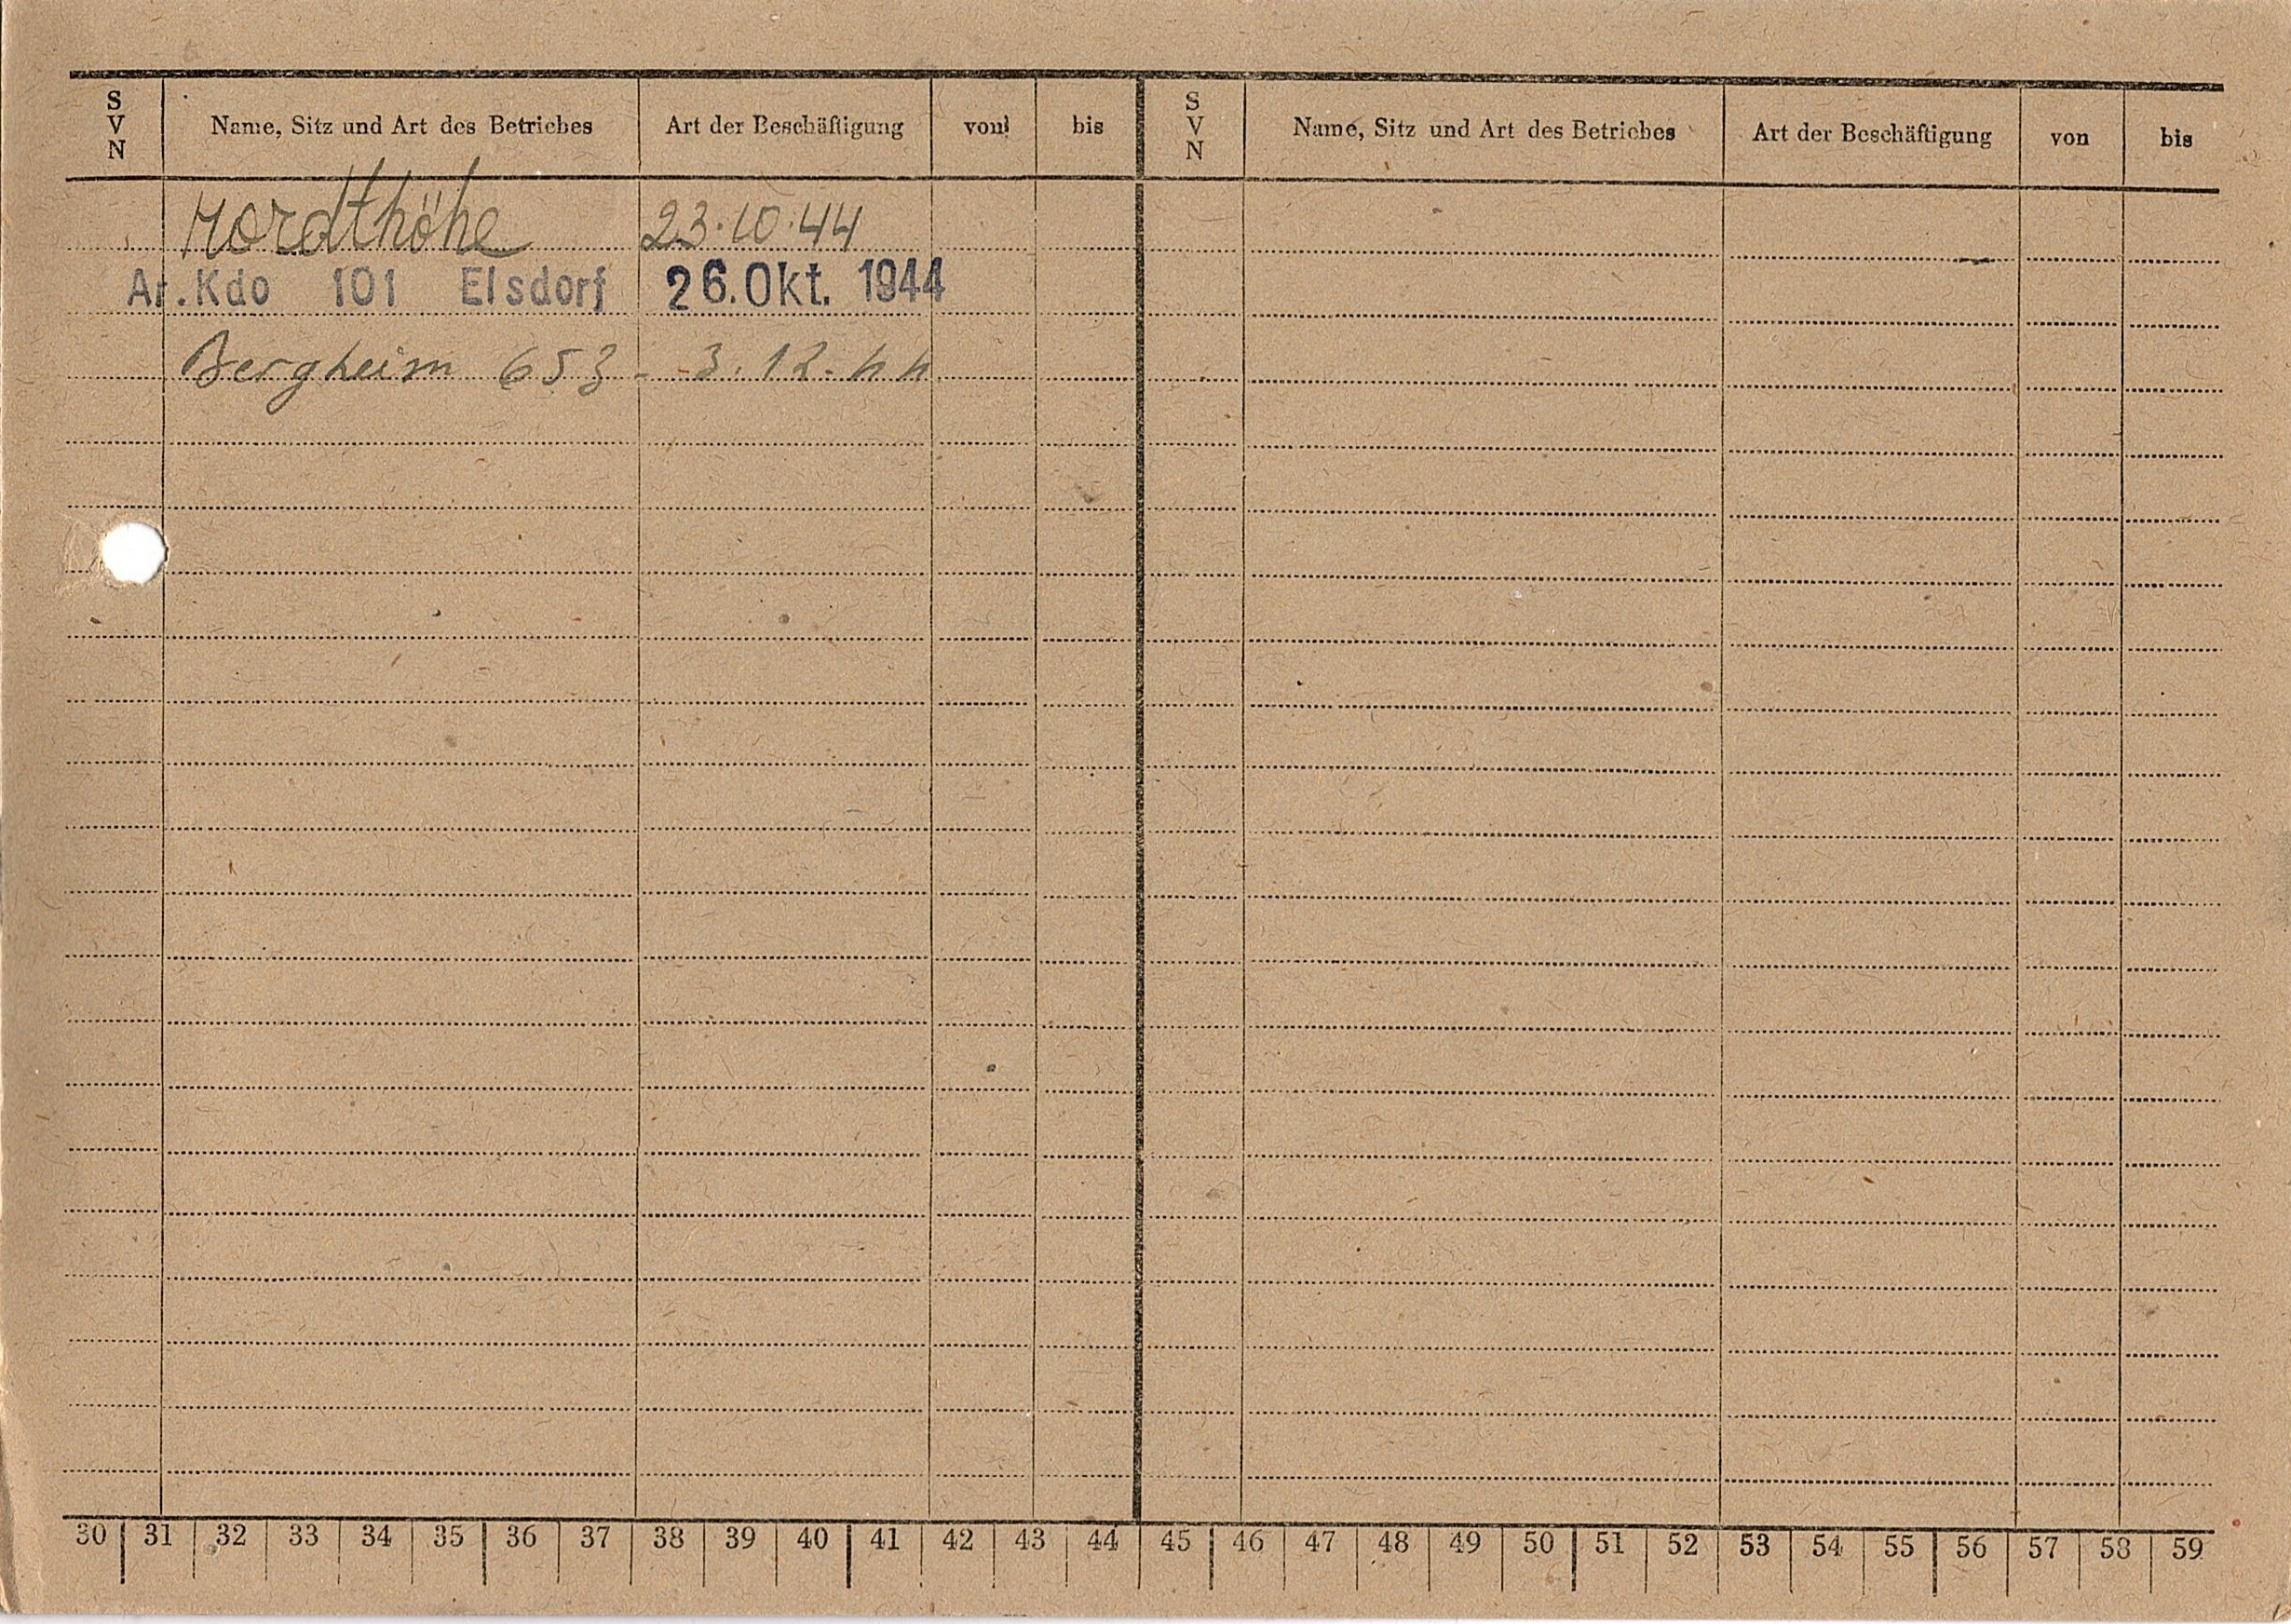 S V N Name, Sitz und Art des Betriebes Art der Beschäftigung von bis S V N Name, Sitz und Art des Betriebes Art der Beschäftigung von bis
Horathöhe 23.10.44
Ar.Kdo 101 Elsdorf 26.Okt. 1944
Bergheim 653 - 3.12.44
30 31 32 33 34 35 36 37 38 39 40 41 42 43 44 45 46 47 48 49 50 51 52 53 54 55 56 57 58 59